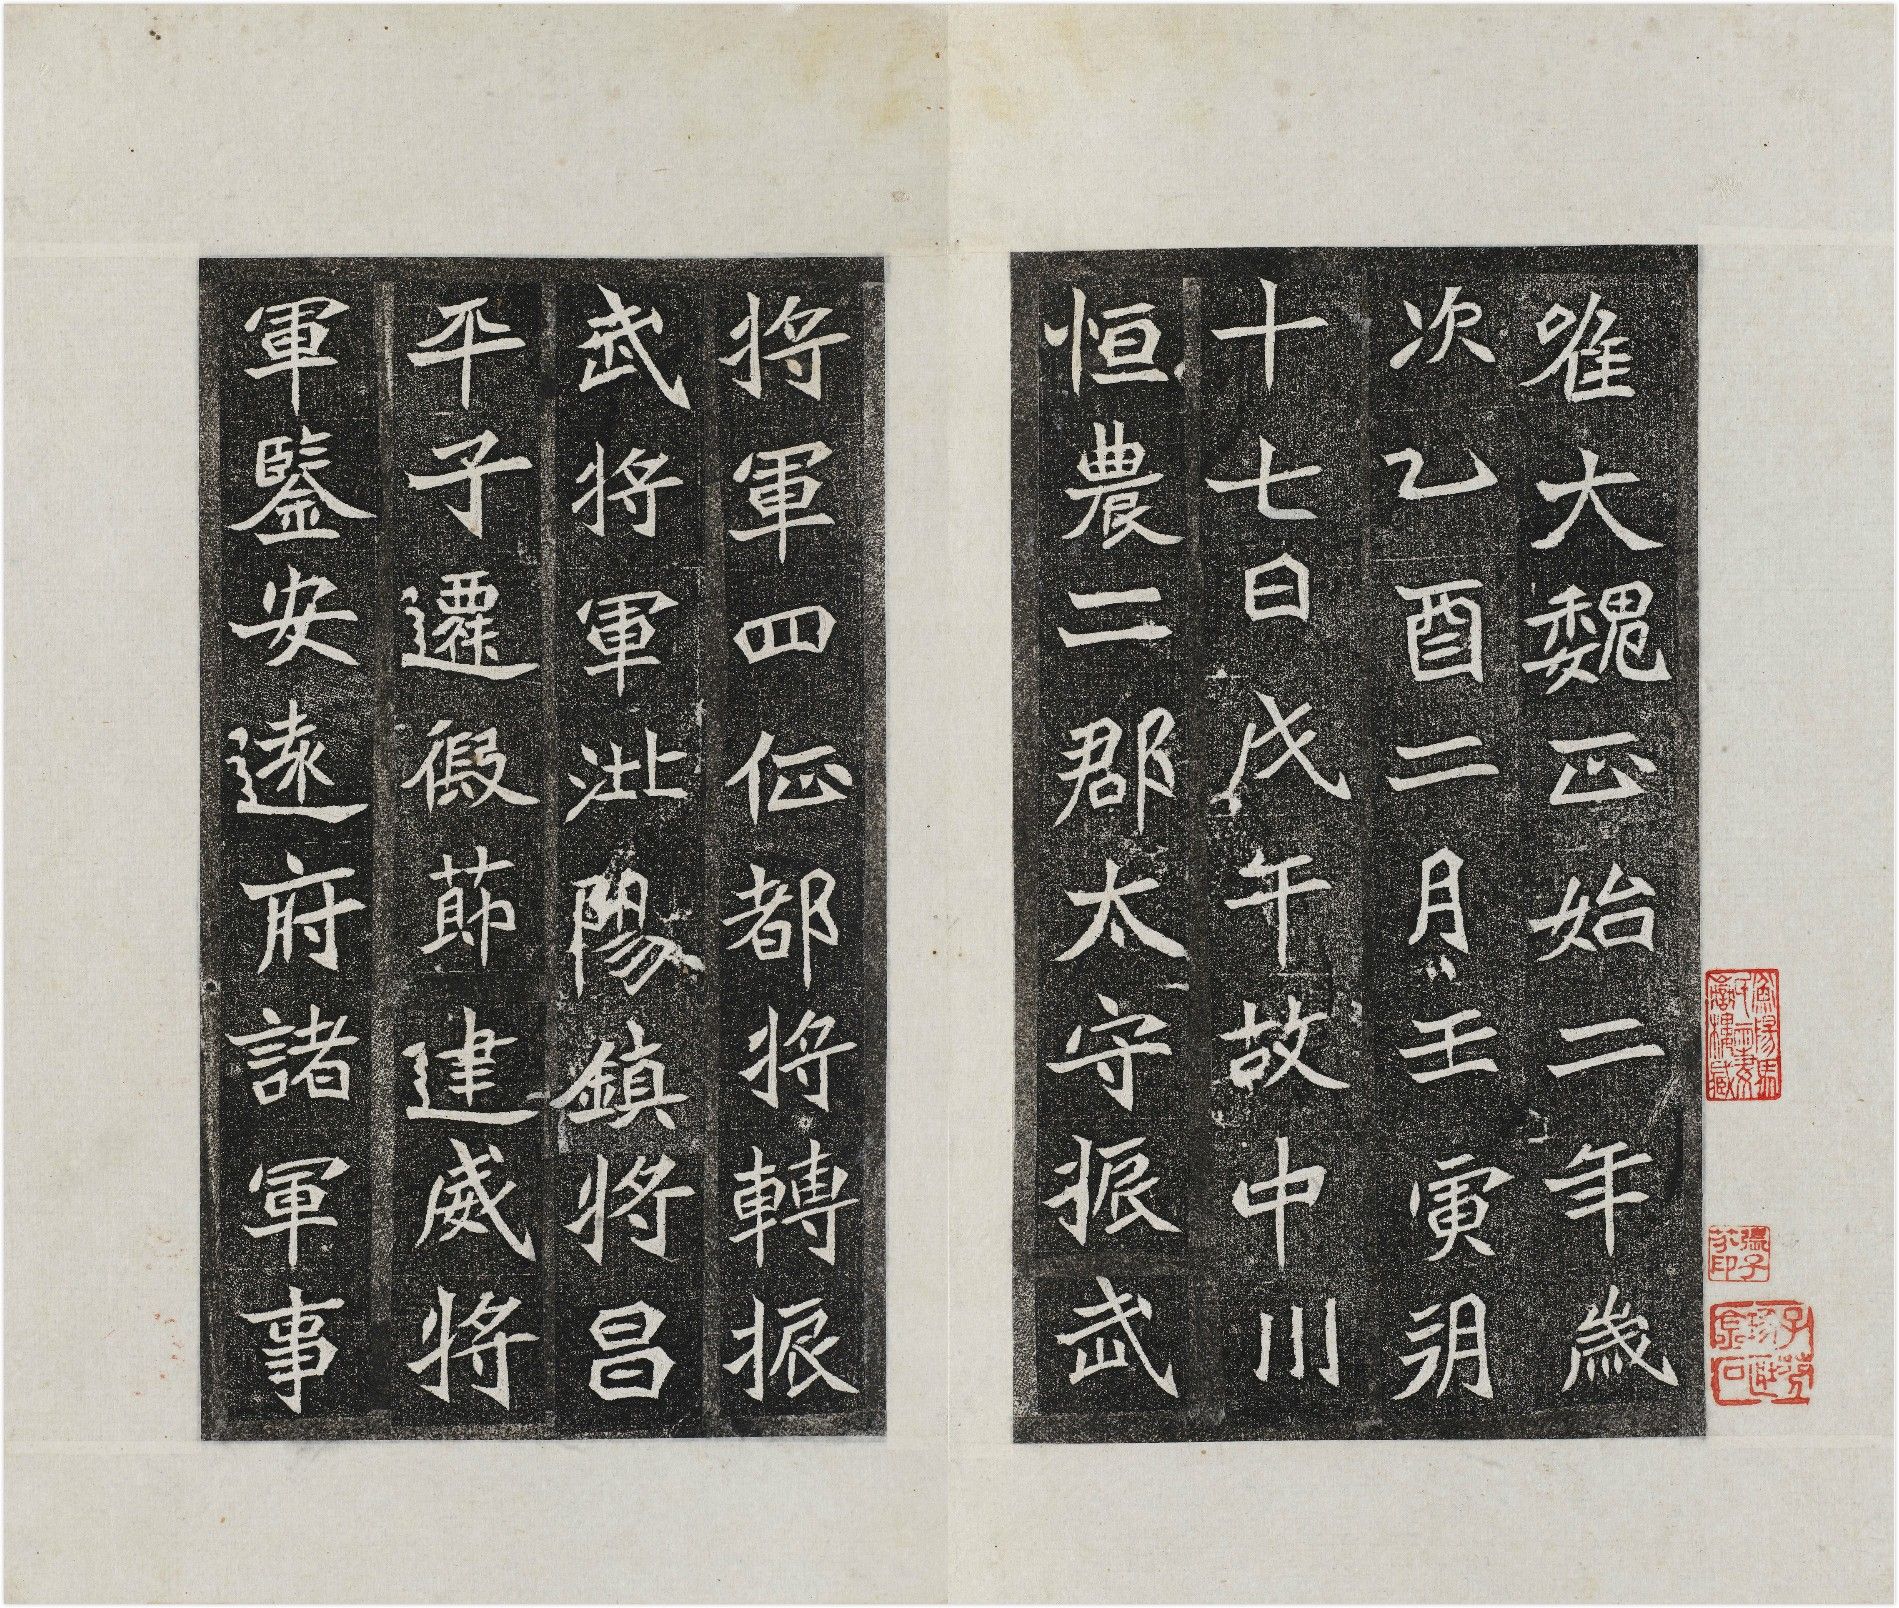 唯大魏正始二年歲
次乙酉二月壬寅朔
十七日戊午故中川
恒農二郡太守振武
將軍四征都將轉振
武將軍沘陽鎮將昌
平子遷假節建威將
軍鑒安遠府諸軍事